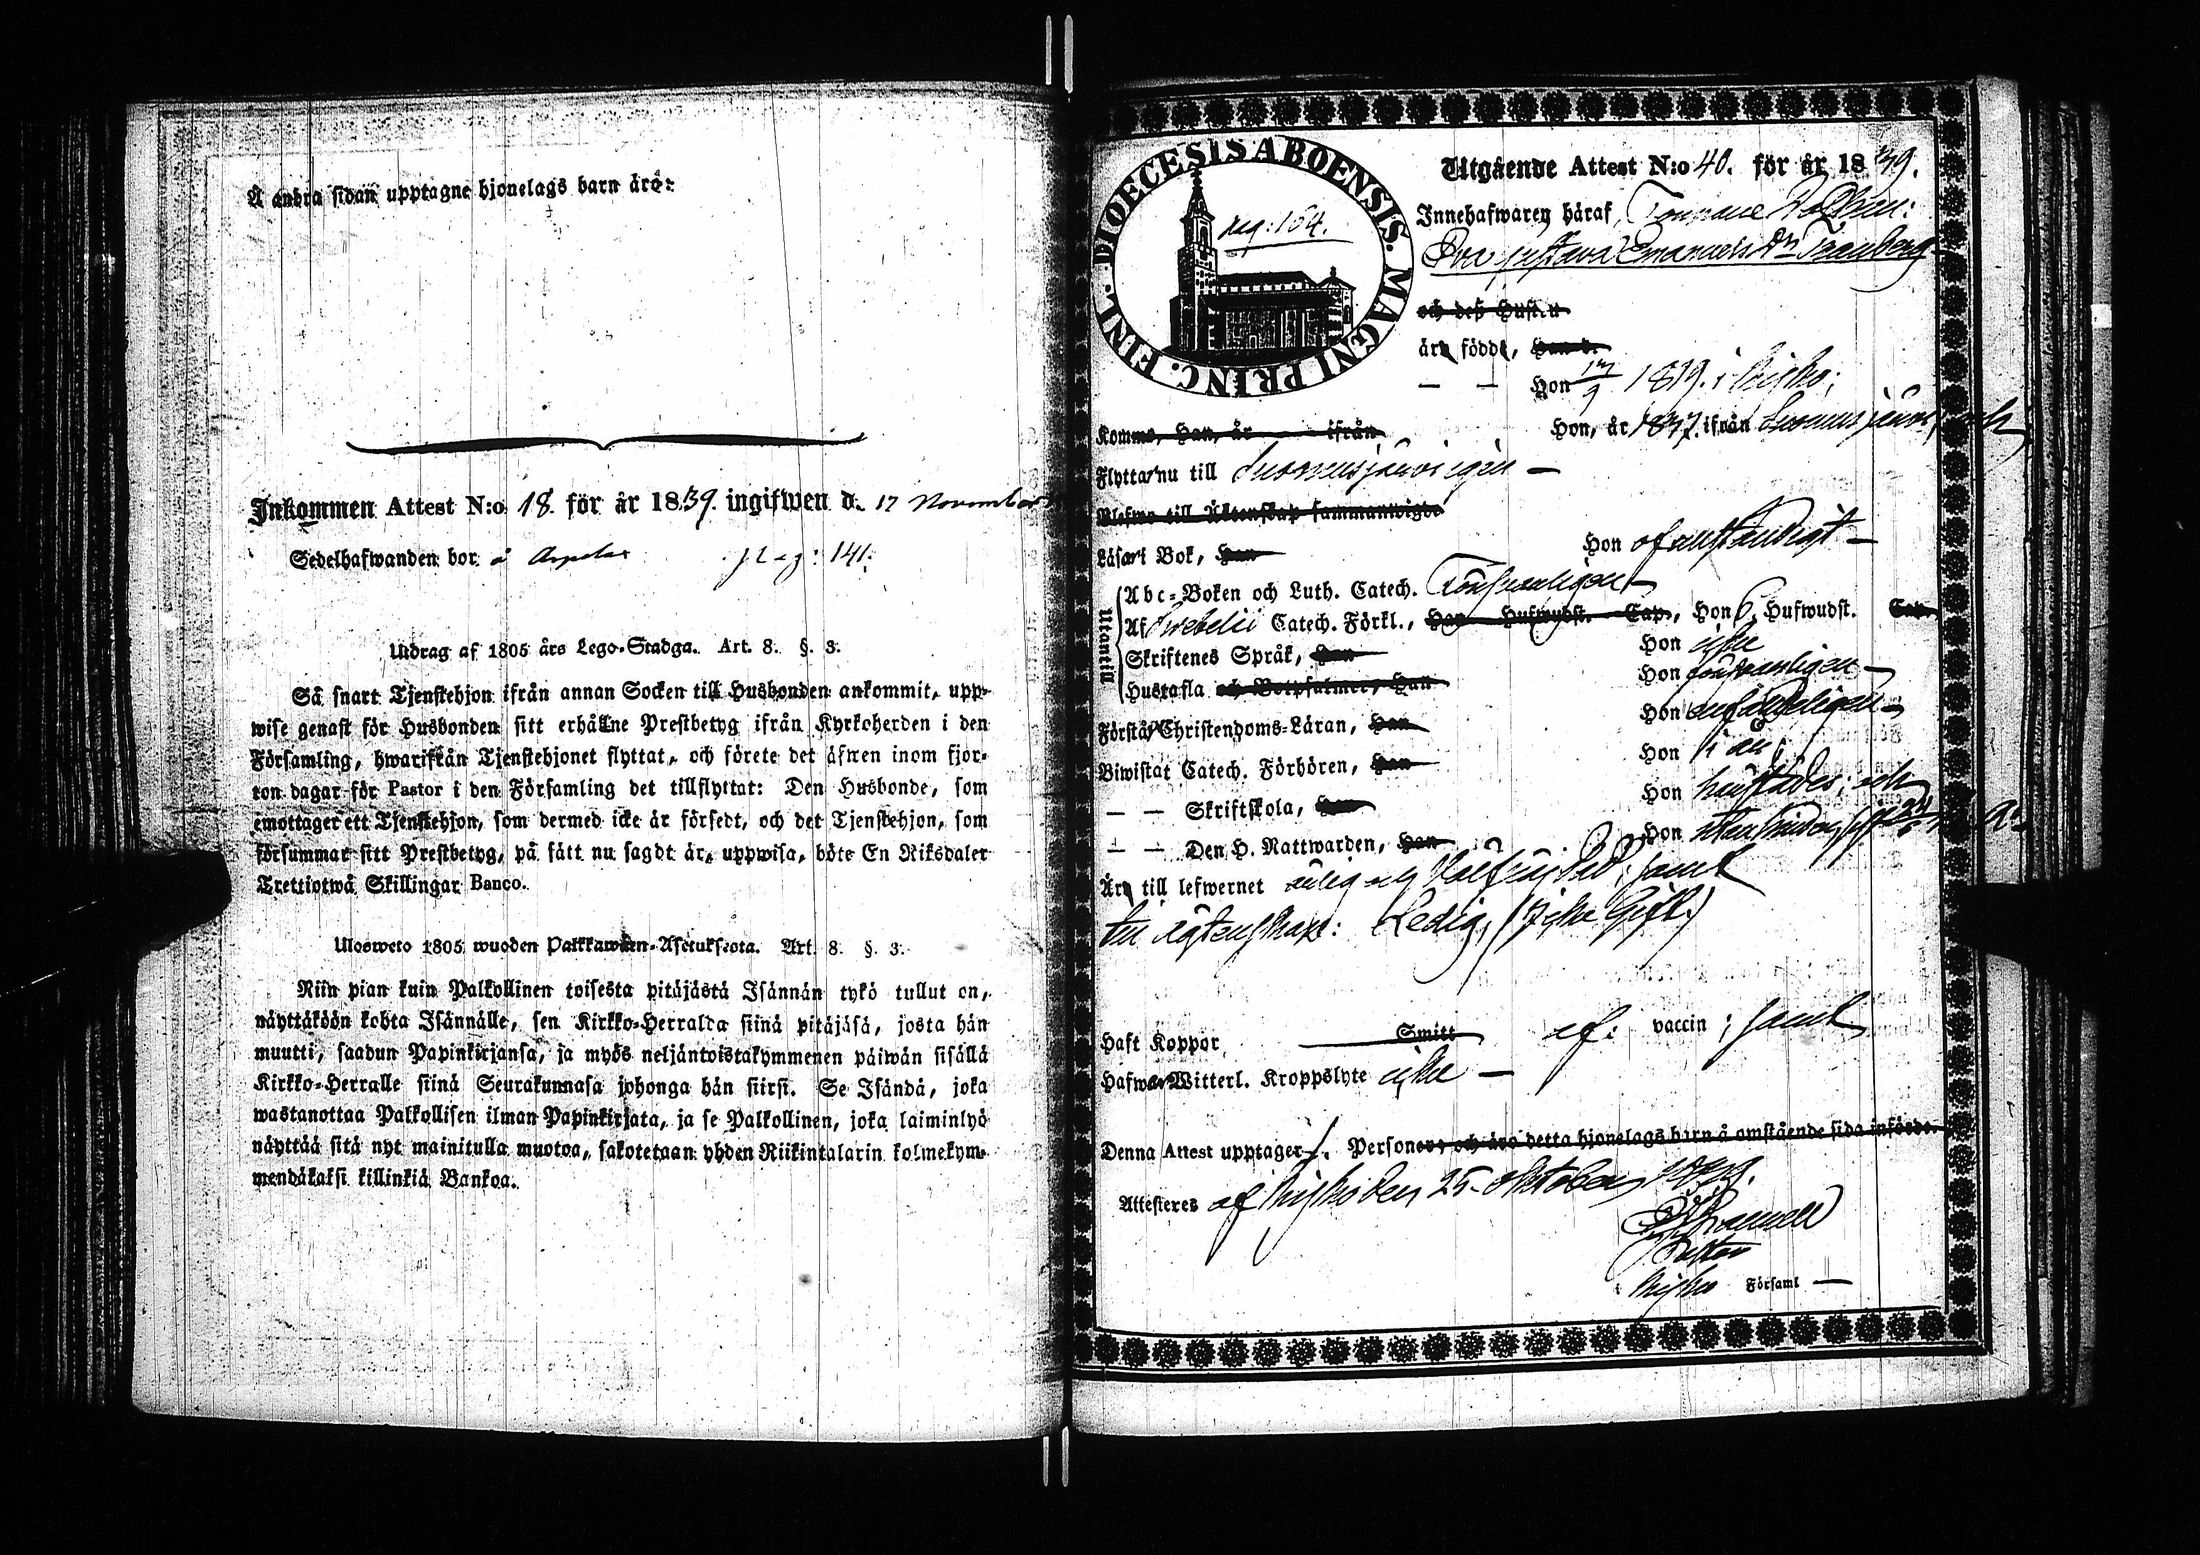 Å andra sidan upptagne hjonelags barn äro:
Inkommen Attest N:o 18. för år 1839. ingifwen d. 17 November
Sedelhafwanden bor å pag: 141.
Utdrag af 1805 års Lego-Stadga. Art. 8. §. 3.
Så snart Tjenstehjon ifrån annan Socken till Husbonden ankommit, upp-
wise genast för Husbonden sitt erhållne Prestbetyg ifrån Kyrkoherden i den
Församling, hwarifrån Tjenstehjonet flyttat, och förete det äfwen inom fjor-
ton dagar för Pastor i den Församling det tillflyttat: Den Husbonde, som
emottager ett Tjenstehjon, som dermed icke är försedt, och det Tjenstehjon, som
försummar sitt Prestbetyg, på sätt nu sagdt är, uppwisa, böte En Riksdaler
Trettiotwå Skillingar Banco.
Ulosweto 1805 wuoden Palkkawäen-Asetuksesta. Art. 8. §. 3.
Niin pian kuin Palkollinen toisesta pitäjästä Isännän tykö tullut on,
näyttäköön kohta Isännälle, sen Kirkko-Herralda siinä pitäjäsä, josta hän
muutti, saadun Papinkirjansa, ja myös neljäntoistakymmenen päiwän sisällä
Kirkko-Herralle siinä Seurakunnasa johonga hän siirsi. Se Isändä, joka
wastanottaa Palkollisen ilman Papinkirjata, ja se Palkollinen, joka laiminlyö
näyttää sitä nyt mainitulla muotoa, sakotetaan yhden Riikintalarin kolmekym-
mendäkaksi killinkiä Bankoa.
DIOECESIS ABOENSIS. MAGNI PRINC. FINL.
pag: 164.
Utgående Attest N:o 40. för år 1839.
Innehafwaren häraf,
Eva Gustava Emanuels Dr Tranberg
och deß Hustru
äro födde, Han d.
— — Hon 17/9 1819. i Kisko;
Komne, Han, år ifrån Hon, år 1837. ifrån Suomusjärvi, och
Flyttar nu till Suomusjärvi igen —
Blefwo till Äktenskap sammanwigde
Läsa i Bok, Han Hon oförständigt —
Utantill
Abc-Boken och Luth. Catech. Försvarligen
Af Svebelii Catech. Förkl., Han Hufwudst. Cap., Hon 6. Hufwudst. Cap.
Skriftenes Språk, Han Hon icke
Hustafla och Botpsalmer, Han Hon försvarligen —
Förstår Christendoms-Läran, Han Hon
Biwistat Catech. Förhören, Han Hon
— — Skriftskola, Han Hon och
— — Den H. Nattwarden, Han Hon
Äro till lefwernet samt
till ägtenskap: Ledig, (Icke Gift.)
Haft Koppor Smitt af: vaccin; samt
Hafwa Witterl. Kroppslyte icke —
Denna Attest upptager 1. Personer, och äro detta hjonelags barn å omstående sida införde.
Attesteras af Kisko den 25. Oktober 1839.
Pastor
Kisko Församl —